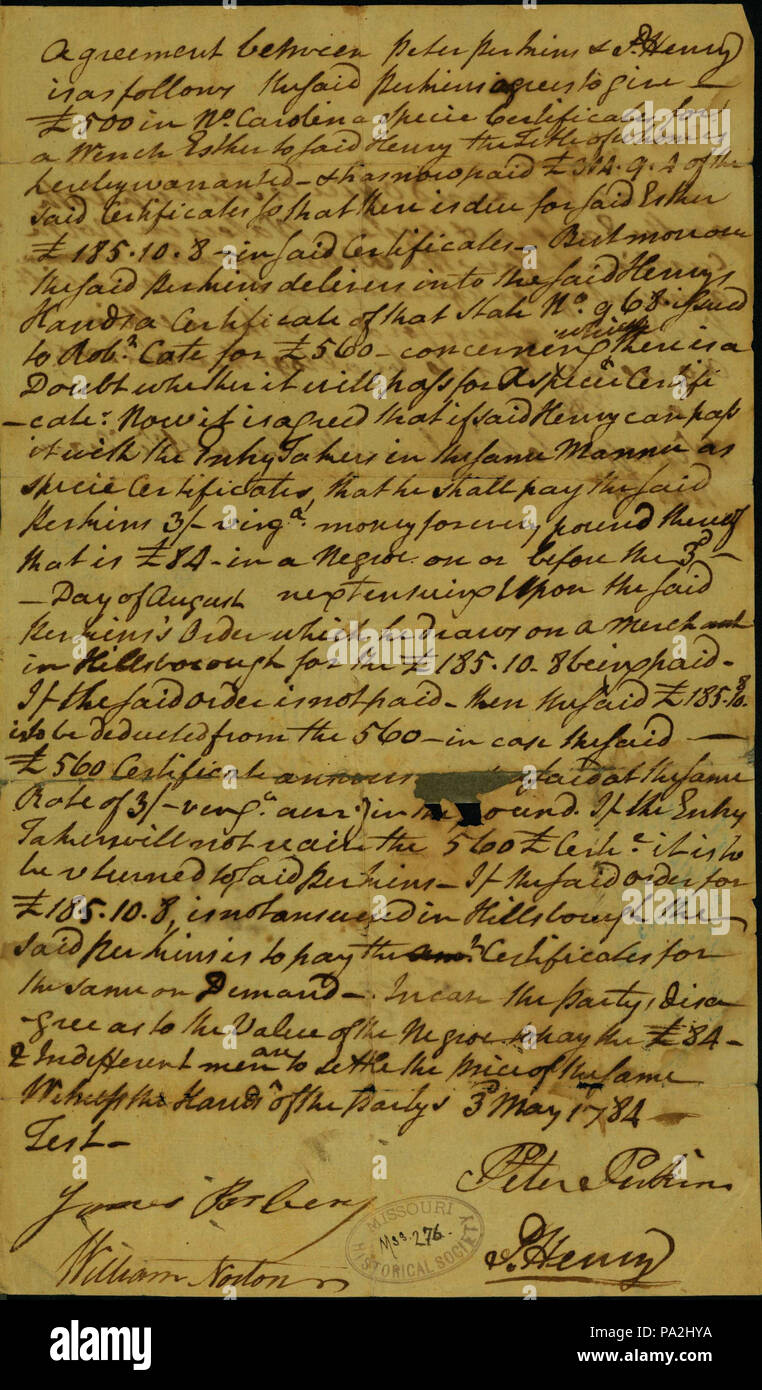 Agreement between Peter Perkins & P. Henry
is as follows the said Perkins agrees to give —
£500 in No. Carolina specie Certificates, for
a Wench Esther to said Henry the Title of whom is
hereby warranted — & has now paid £314.9.4 of the
said Certificates so that there is due for said Esther
£185.10.8 — in said Certificates — But moreover
the said Perkins delivers into the said Henrys
Hands a Certificate of that State No. 968 issued
to Robt. Cate for £560 — concerning which there is a
Doubt whether it will pass for a specie Certifi
-cate. Now it is agreed that if said Henry can pass
it with the Entry Takers in the same Manner as
specie Certificates, that he shall pay the said
Perkins 3/- virga. money for every pound thereof
that is £84 — in a Negroe on or before the 3d —
— Day of August next ensuing Upon the said
Perkins's Order which he draws on a Merchant
in Hillsborough for the £185.10.8 being paid —
If the said order is not paid — then the said £185.10.8
is to be deducted from the 560 — in case the said —
£560 Certificate answers said at the same
Rate of 3/- in the pound. If the Entry
Takers will not receive the 560£ Certe. it is to
be returned to said Perkins — If the said order for
£185.10.8, is not answered in Hillsborough the —
said Perkins is to pay the Certificates for
the same on Demand —. In case the Partys disa
-gree as to the Value of the Negroe to pay the £84 —
2 Indifferent men are to settle the Price of the same
Witness the Hands of the Partys 3d May 1784 —
Test —
Peter Perkins
James
P. Henry
William Norton
MISSOURI
Mss. 276.
HISTORICAL SOCIETY
alamy
alamy
Image ID: PA2HYA
www.alamy.com